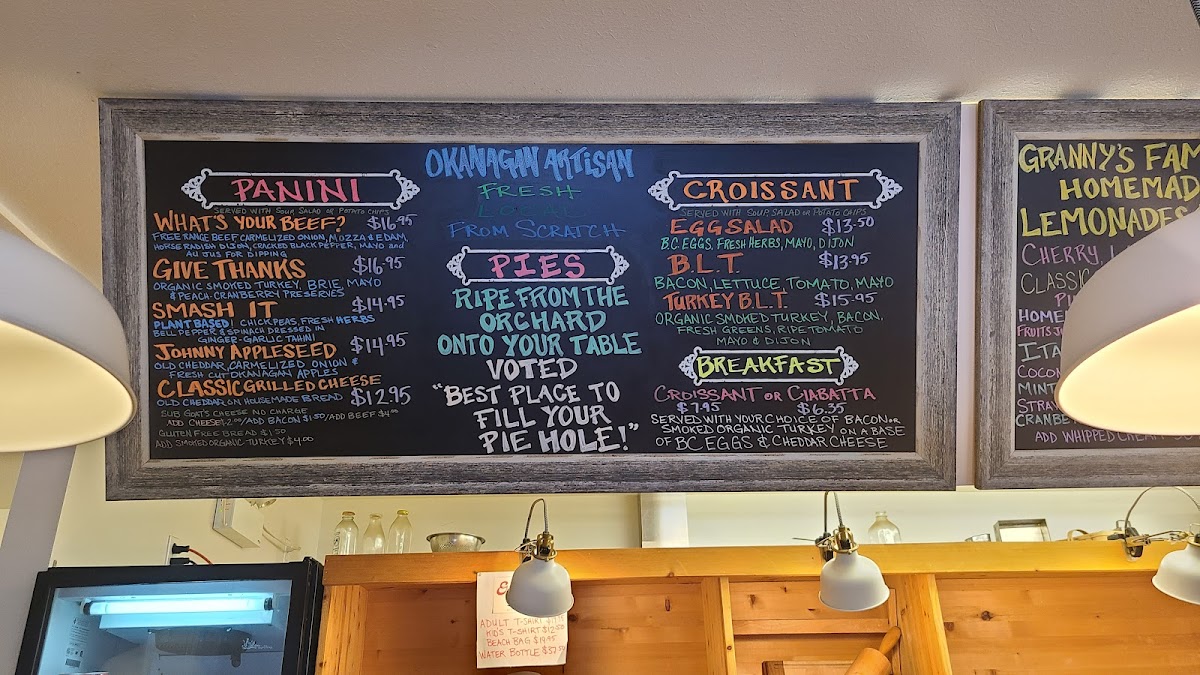 PANINI
SERVED WITH SOUP, SALAD OR POTATO CHIPS
WHAT'S YOUR BEEF? $16.95
FREE RANGE BEEF, CARMELIZED ONION, MOZZA & EDAM,
HORSE RADISH DIJON, CRACKED BLACK PEPPER, MAYO and
AU JUS FOR DIPPING
GIVE THANKS $16.95
ORGANIC SMOKED TURKEY, BRIE, MAYO
& PEACH-CRANBERRY PRESERVES
SMASH IT $14.95
PLANT BASED! CHICKPEAS, FRESH HERBS
BELL PEPPER & SPINACH DRESSED IN
GINGER-GARLIC TAHINI
JOHNNY APPLESEED $14.95
OLD CHEDDAR, CARMELIZED ONION &
FRESH CUT OKANAGAN APPLES
CLASSIC GRILLED CHEESE
OLD CHEDDAR ON HOUSEMADE BREAD $12.95
SUB GOAT'S CHEESE NO CHARGE
ADD CHEESE $2.00/ADD BACON $1.50/ADD BEEF $4.00
GLUTEN FREE BREAD $1.50
ADD SMOKED ORGANIC TURKEY $4.00
OKANAGAN ARTISAN
FRESH
LOCAL
FROM SCRATCH
PIES
RIPE FROM THE
ORCHARD
ONTO YOUR TABLE
VOTED
"BEST PLACE TO
FILL YOUR
PIE HOLE!"
CROISSANT
SERVED WITH SOUP, SALAD OR POTATO CHIPS
EGG SALAD $13.50
B.C. EGGS, FRESH HERBS, MAYO, DIJON
B.L.T. $13.95
BACON, LETTUCE, TOMATO, MAYO
TURKEY B.L.T. $15.95
ORGANIC SMOKED TURKEY, BACON,
FRESH GREENS, RIPE TOMATO
MAYO & DIJON
BREAKFAST
CROISSANT OR CIABATTA
$7.95 $6.35
SERVED WITH YOUR CHOICE OF BACON OR
SMOKED ORGANIC TURKEY ON A BASE
OF BC EGGS & CHEDDAR CHEESE
GRANNY'S FAM
HOMEMAD
LEMONADES
CHERRY, L
CLASSIC
HOME
FRUITS
ITA
COCON
MINT
STRAW
CRANBE
ADD WHIPPED CREAM
ADULT T-SHIRT
KID'S T-SHIRT $12
BEACH BAG $19.95
WATER BOTTLE $37